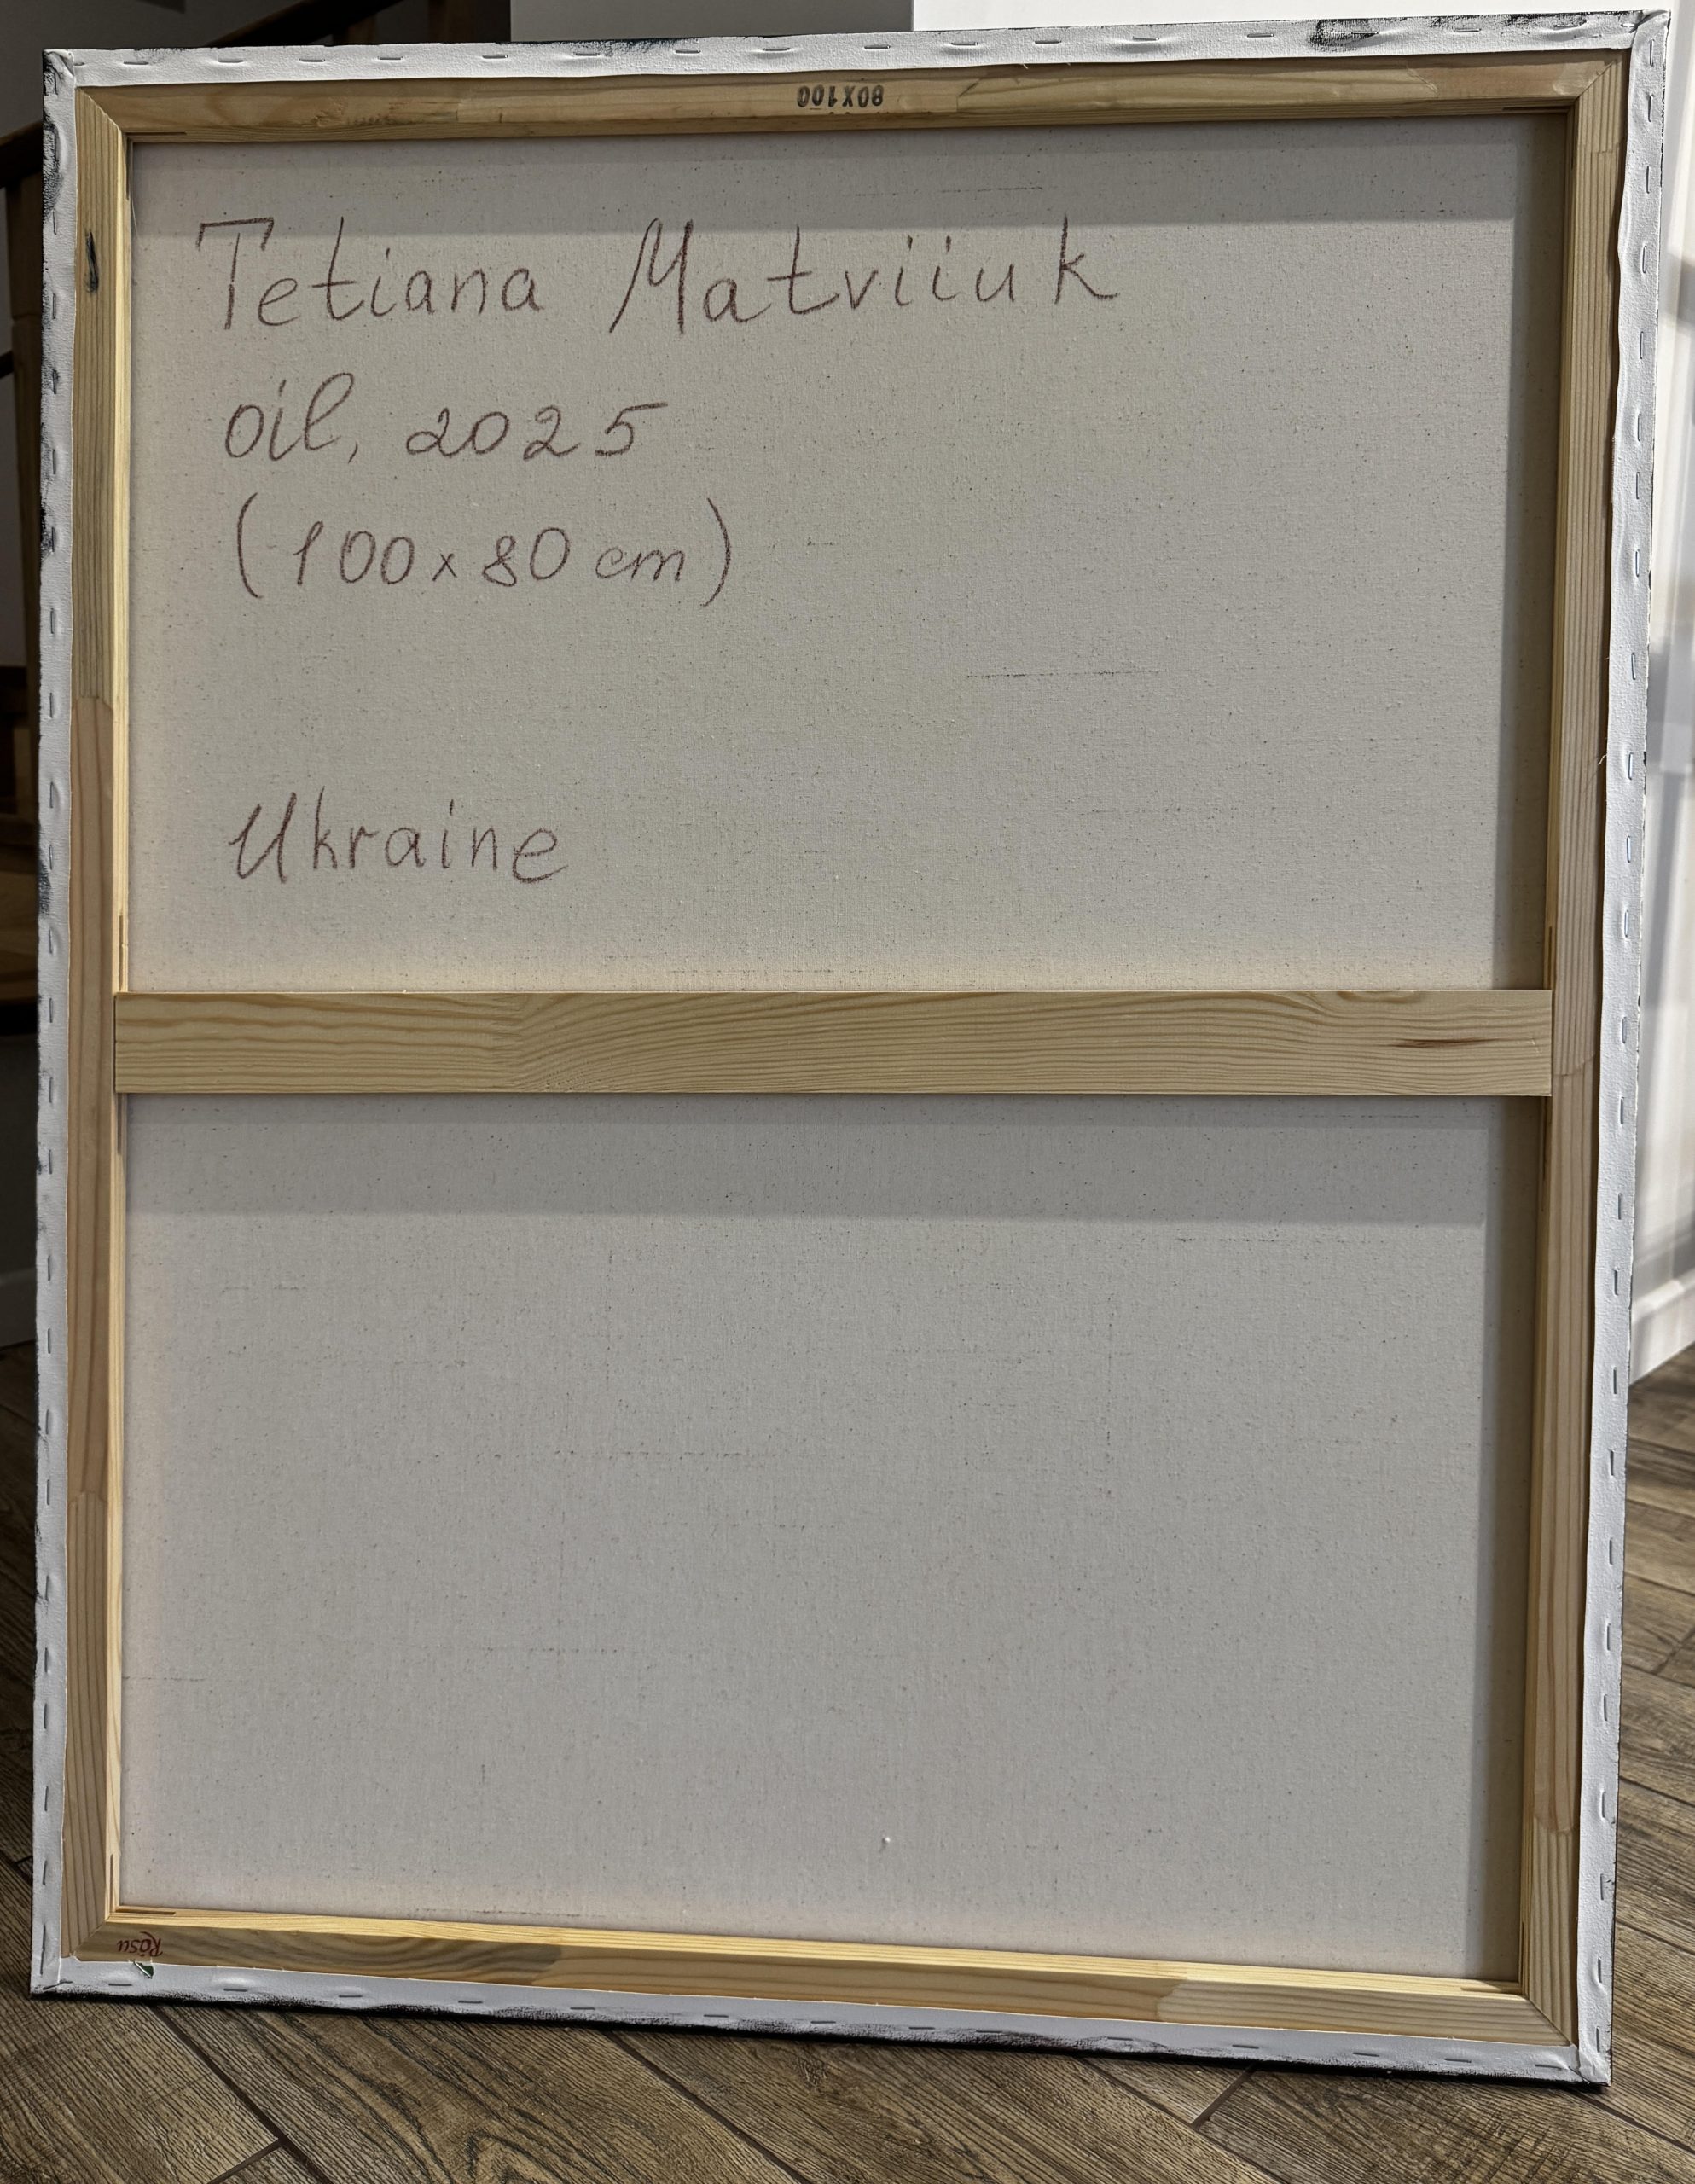 80X100
Tetiana Matviiuk
oil, 2025
(100 x 80 cm)
Ukraine
Rosa